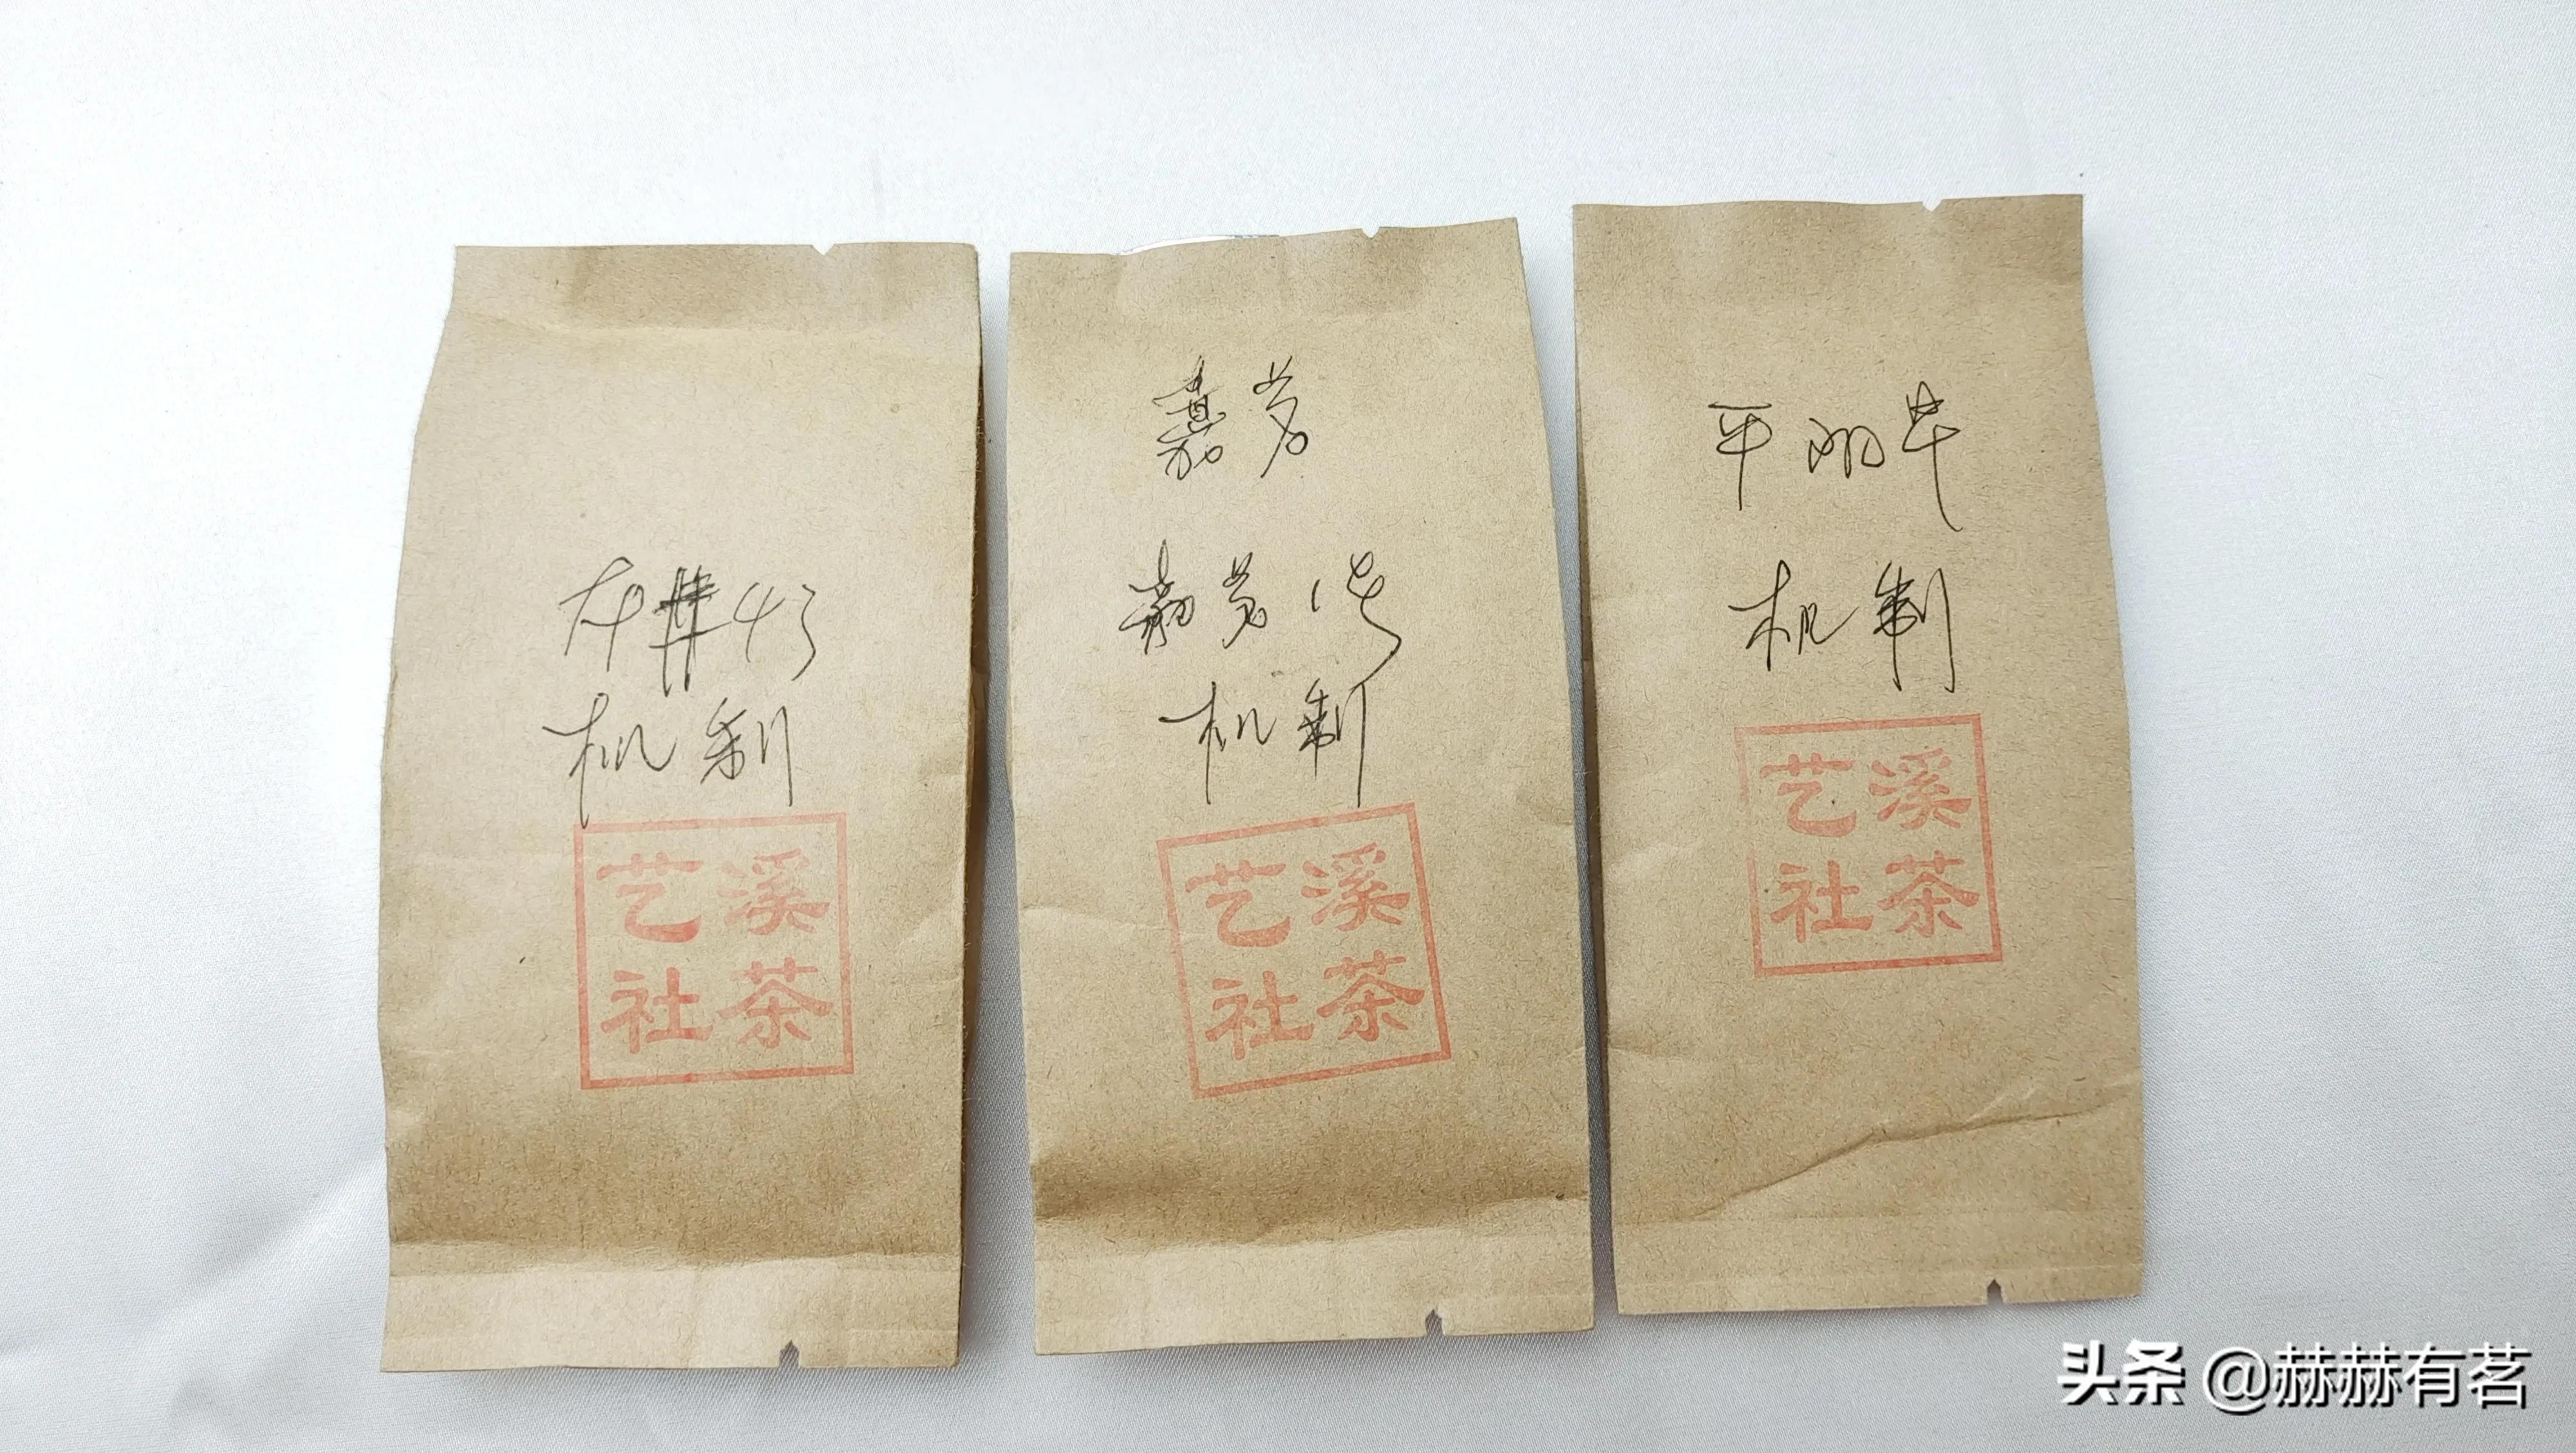 龙井43
机制
溪茶
艺社
嘉茗
嘉茗1号
机制
溪茶
艺社
平
机制
溪茶
艺社
头条 @赫赫有茗